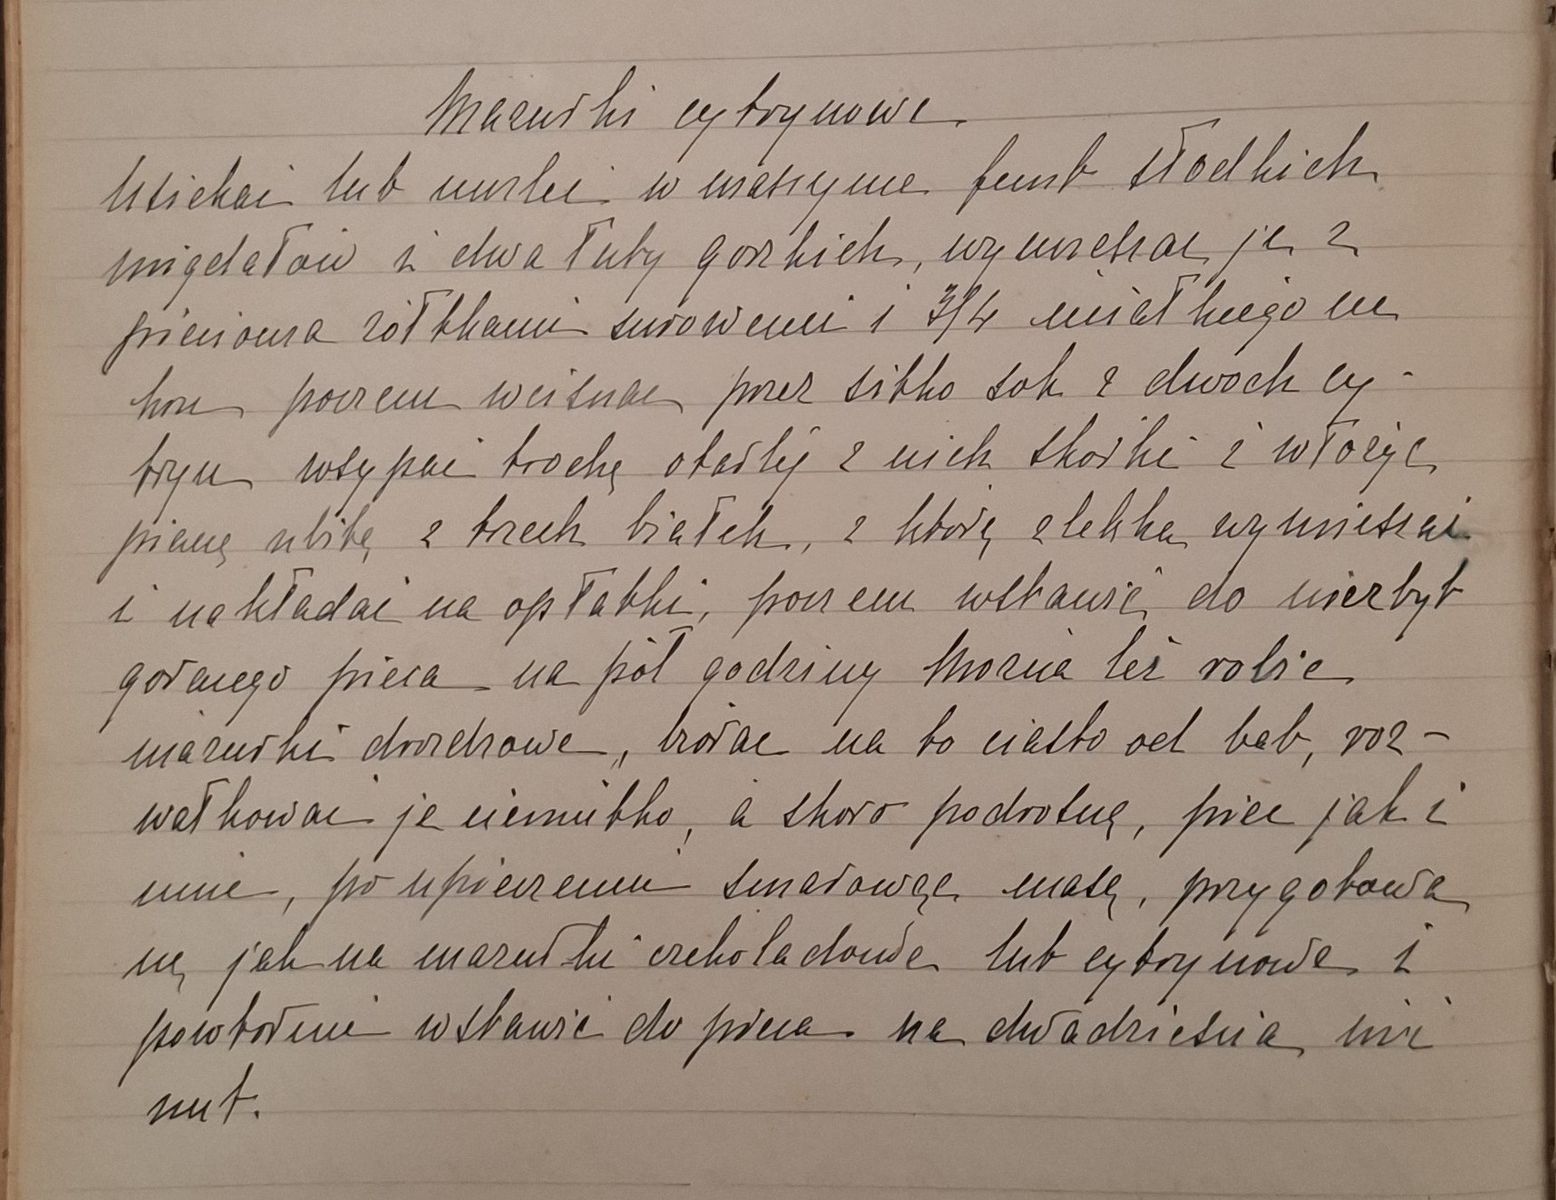 Mazurki cytrynowe
Usiekać lub umleć w maszynce funt słodkich
migdałów i dwa łuty gorzkich, wymieszać je z
pięcioma żółtkami surowemi i 3/4 miałkiego cu
kru poczem wcisnąć przez sitko sok z dwóch cy-
tryn wsypać trochę otartej z nich skórki i włożyć
pianę ubitę z trzech białek, z którą zlekka wymieszać
i nakładać na opłatki, poczem wstawić do niezbyt
gorącego pieca na pół godziny Można też robić
mazurki drożdżowe, biorąc na to ciasto od bab, roz-
wałkować je cieniutko, a skoro podrosną, piec jak i
inne, po upieczeniu smarować masą, przygotowa
ną jak na mazurki czekoladowe lub cytrynowe i
powtórnie wstawić do pieca na dwadzieścia mi
nut.